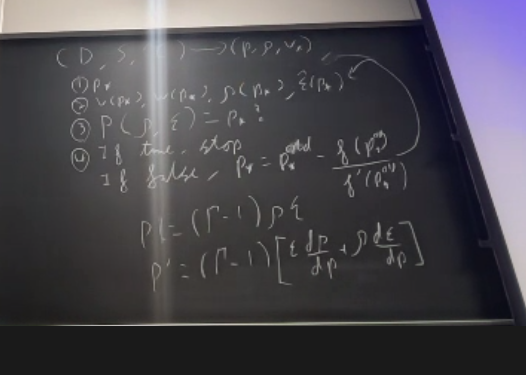 (D, S, ) → (p, ρ, v*)
① p*
② v(p*), w(p*), ρ(p*), ε(p*)
③ P(ρ, ε) = p* ?
④ If true, stop
If false, p* = p*^old - f(p*^old) / f'(p*^old)
P = (Γ-1) ρ ε
P' = (Γ-1) [ε dρ/dp + ρ dε/dp]